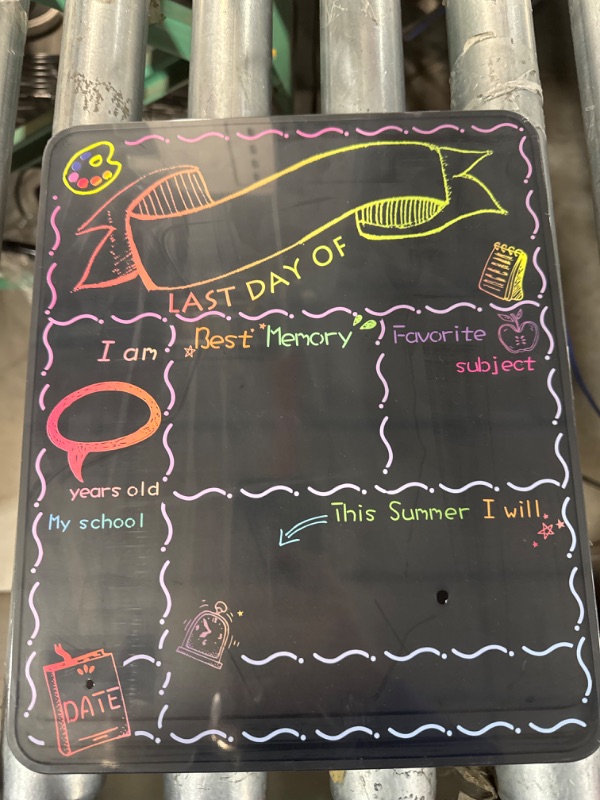 LAST DAY OF
I am
years old
Best Memory
Favorite
subject
My school
This Summer I will
DATE